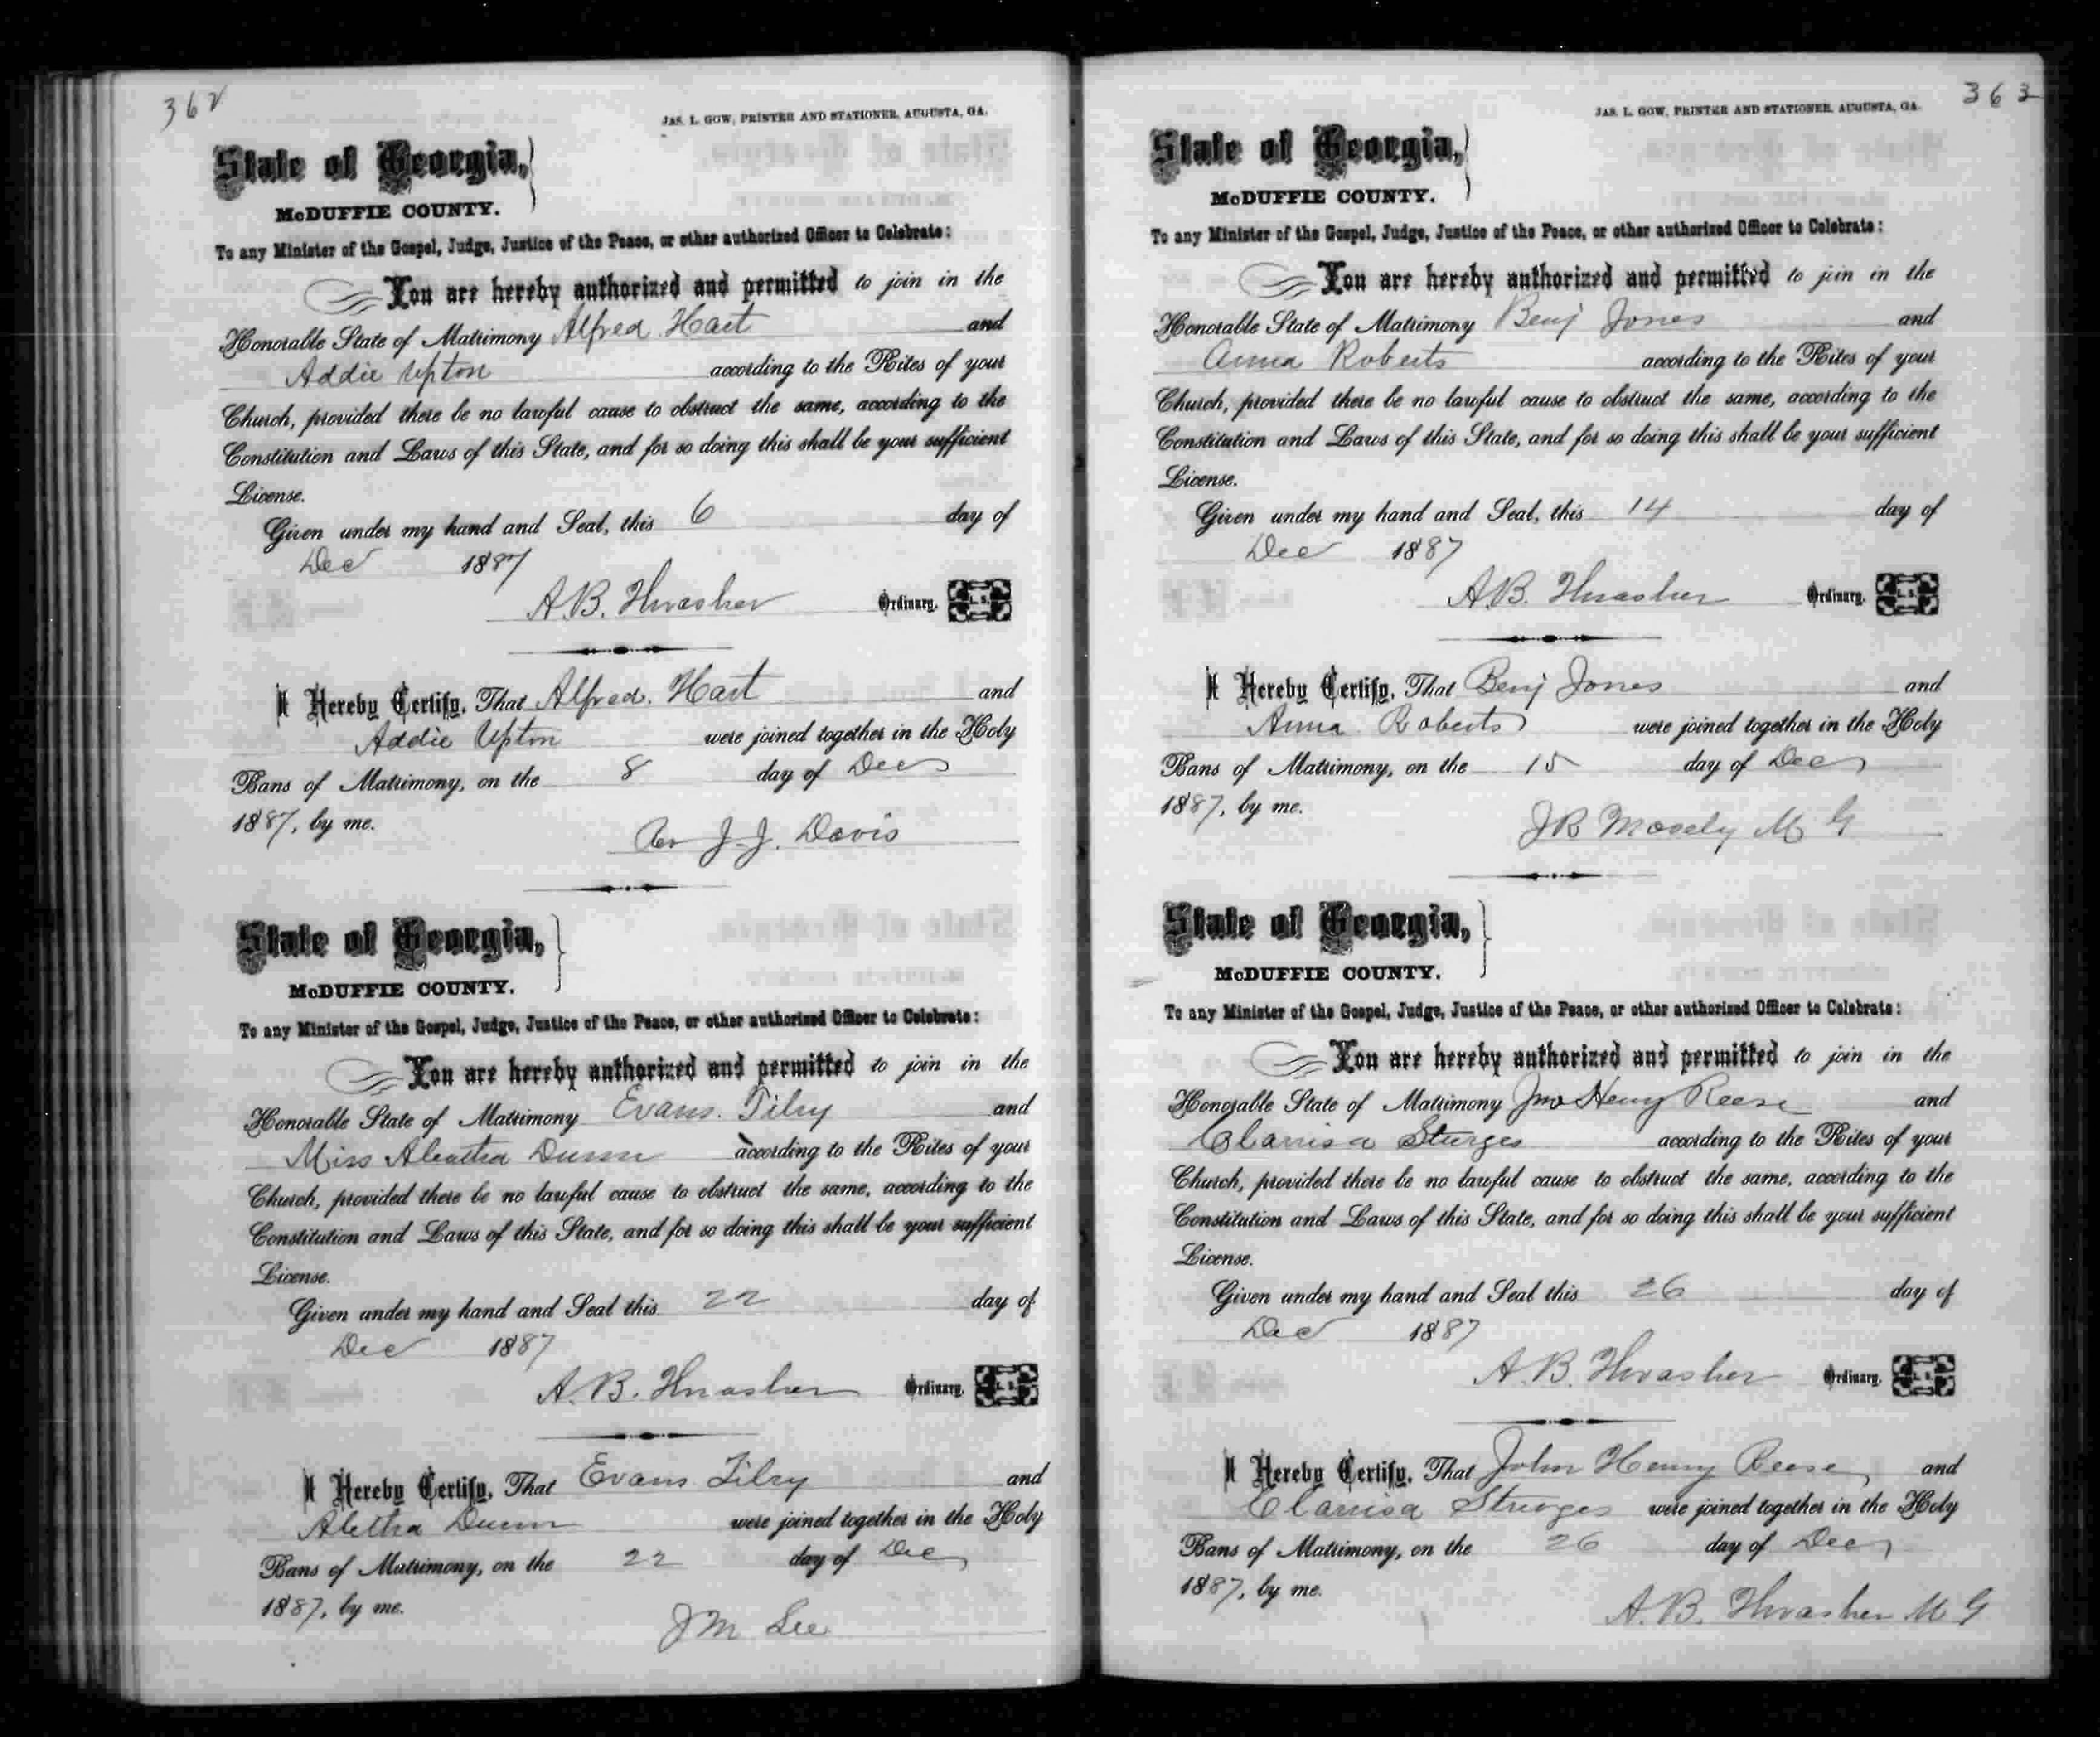 362
JAS. L. GOW, PRINTER AND STATIONER, AUGUSTA, GA.
State of Georgia,
McDUFFIE COUNTY.
To any Minister of the Gospel, Judge, Justice of the Peace, or other authorized Officer to Celebrate:
You are hereby authorized and permitted to join in the
Honorable State of Matrimony Alfred Hart and
Addie Upton according to the Rites of your
Church, provided there be no lawful cause to obstruct the same, according to the
Constitution and Laws of this State, and for so doing this shall be your sufficient
License.
Given under my hand and Seal, this 6 day of
Dec 1887
A.B. Thrasher Ordinary. L. S.
I Hereby Certify, That Alfred. Hart and
Addie Upton were joined together in the Holy
Bans of Matrimony, on the 8 day of Dec
1887, by me.
Rev J. J. Davis
State of Georgia,
McDUFFIE COUNTY.
To any Minister of the Gospel, Judge, Justice of the Peace, or other authorized Officer to Celebrate:
You are hereby authorized and permitted to join in the
Honorable State of Matrimony Evans. Tilry and
Miss Aleatha Dunn according to the Rites of your
Church, provided there be no lawful cause to obstruct the same, according to the
Constitution and Laws of this State, and for so doing this shall be your sufficient
License.
Given under my hand and Seal this 22 day of
Dec 1887
A. B. Thrasher Ordinary. L. S.
I Hereby Certify, That Evans Tilry and
Aletha Dunn were joined together in the Holy
Bans of Matrimony, on the 22 day of Dec
1887, by me.
J M Lee
363
JAS. L. GOW, PRINTER AND STATIONER, AUGUSTA, GA.
State of Georgia,
McDUFFIE COUNTY.
To any Minister of the Gospel, Judge, Justice of the Peace, or other authorized Officer to Celebrate:
You are hereby authorized and permitted to join in the
Honorable State of Matrimony Benj Jones and
Anna Roberts according to the Rites of your
Church, provided there be no lawful cause to obstruct the same, according to the
Constitution and Laws of this State, and for so doing this shall be your sufficient
License.
Given under my hand and Seal, this 14 day of
Dec 1887
A.B. Thrasher Ordinary. L. S.
I Hereby Certify, That Benj Jones and
Anna Roberts were joined together in the Holy
Bans of Matrimony, on the 15 day of Dec
1887, by me.
J R Mosely M G
State of Georgia,
McDUFFIE COUNTY.
To any Minister of the Gospel, Judge, Justice of the Peace, or other authorized Officer to Celebrate:
You are hereby authorized and permitted to join in the
Honorable State of Matrimony Jno Henry Reese and
Clarrisa Sturges according to the Rites of your
Church, provided there be no lawful cause to obstruct the same, according to the
Constitution and Laws of this State, and for so doing this shall be your sufficient
License.
Given under my hand and Seal this 26 day of
Dec 1887
A. B. Thrasher Ordinary. L. S.
I Hereby Certify, That John Henry Reese and
Clarrisa Sturges were joined together in the Holy
Bans of Matrimony, on the 26 day of Dec
1887, by me.
A. B. Thrasher M G